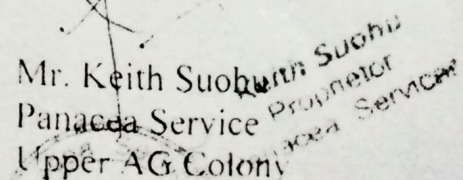 Mr. Keith Suohu
Panacea Service
Upper AG Colony
Keith Suohu
Proprietor
Panacea Services